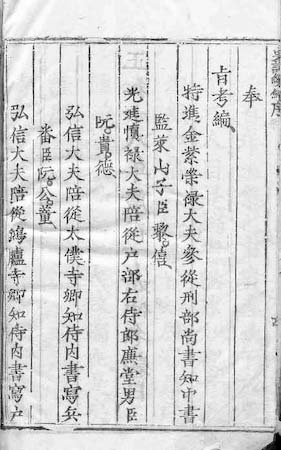 奉
旨考編
特進金紫榮禄大夫參從刑部尚書知中書
監萊山子臣黎僖
光進慎禄大夫陪從户部右侍郎廉堂男臣
阮貴德
弘信大夫陪從太僕寺卿知侍内書寫兵
番臣阮公董
弘信大夫陪從鴻臚寺卿知侍内書寫户